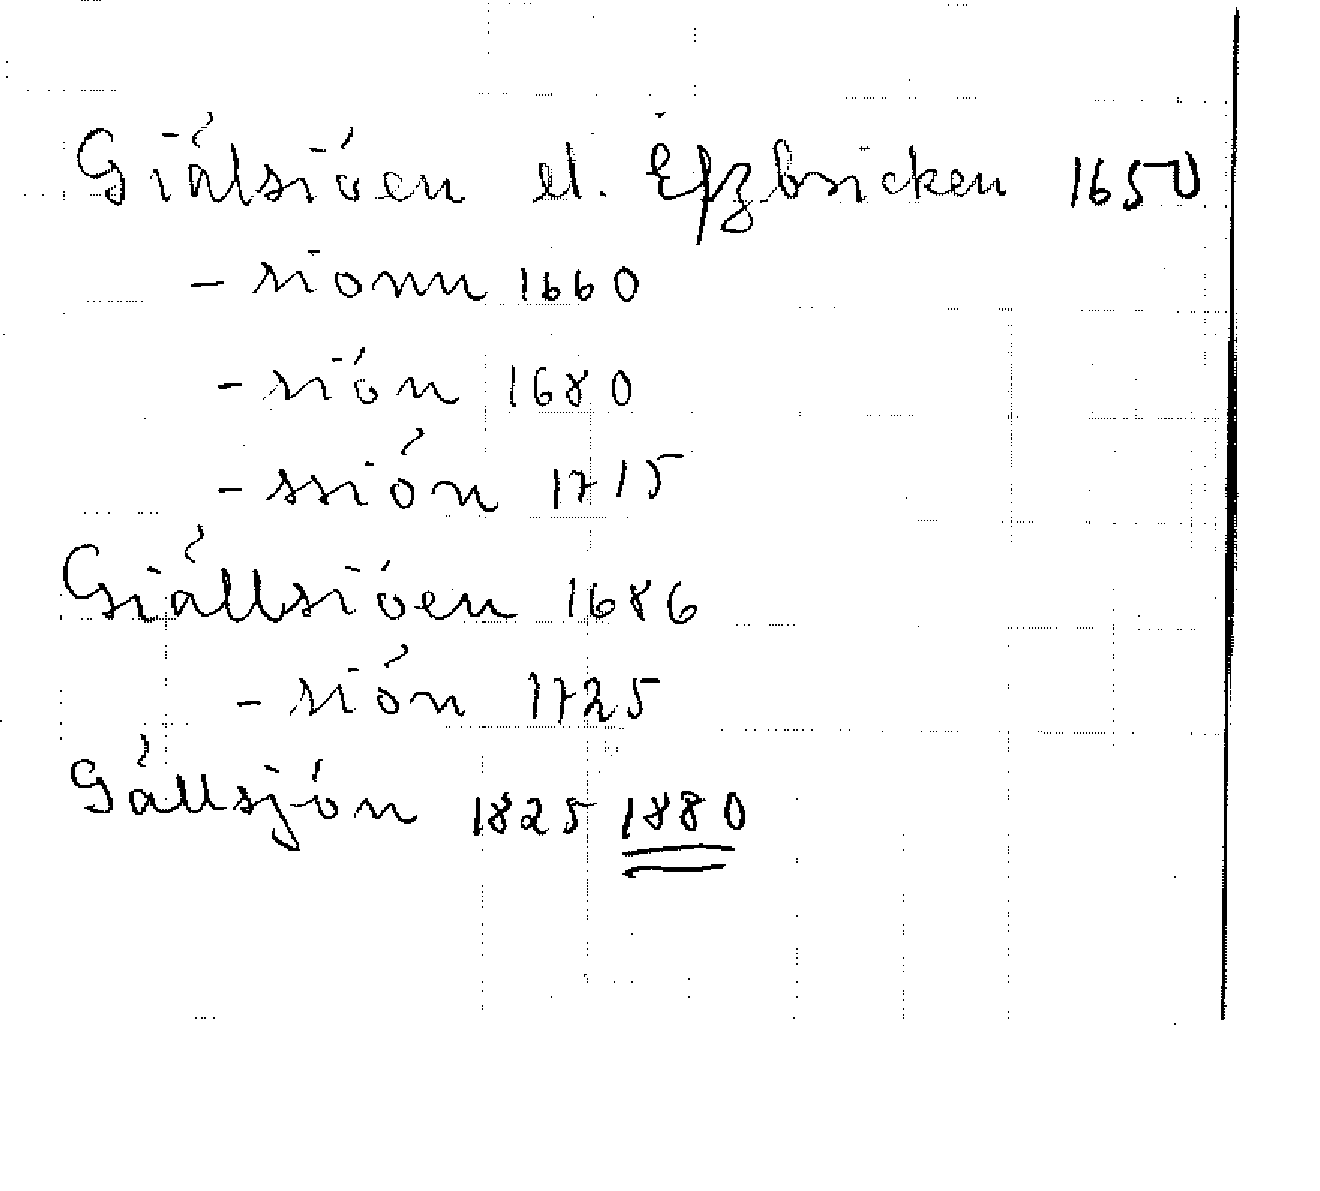 Giälsiöen el. Efzbricken 1650
- sionn 1660
- siön 1680
- ssiön 1715
Giällsiöen 1686
- siön 1725
Gällsjön 1825 1880